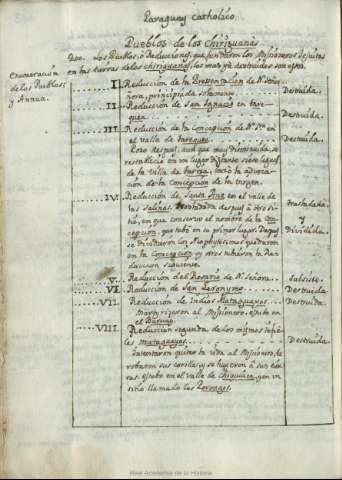 Paraguay Catholico.
Pueblos de los Chiriguanàs
Los Pueblos, ò Reducciones, que fundaron los Missioneros Jesuitas
en las tierras de los chiriguanàs, las mas ya destruidas son estas.
Enumeracion
de los Pueblos,
y Annua.
I. Reduccion de la Presentacion de N. Señora,
principiada solamente. Destruida.
II. Reduccion de San Ignacio en tarequea. Destruida.
III. Reduccion de la Concepcion de N. Sra. en Destruida.
el valle de
Poco despues, aun que muy disminuida, se
restableciò en un lugar distante siete leguas
de la Villa de tarija, bajo la advocacion
de la Concepcion de la Virgen.
IV. Reduccion de Santa Ana en el valle de
las Salinas. trasladada despues à otro sitio, trasladada
en que conservò el nombre de la Concepcion, y
que tubo en su primer lugar. Despues Dividida.
se dividieron los Neophytos: unos quedaron
en la Concepcion, y otros tubieron la Reduccion
siguiente.
V. Reduccion del Rosario de N. Señora. Subsiste.
VI. Reduccion de San Geronymo. Destruida
VII. Reduccion de Indios Mataguayos. Destruida.
Martyrizaron al Missionero: estubo en
el
VIII. Reduccion segunda de los mismos infieles
mataguayos. Destruida.
Intentaron quitar la vida al Missionero, le
robaron sus cosillas, y se huyeron à sus tierras.
Estubo en el valle de chiquiaca, y en un
sitio llamado los
Real Academia de la Historia